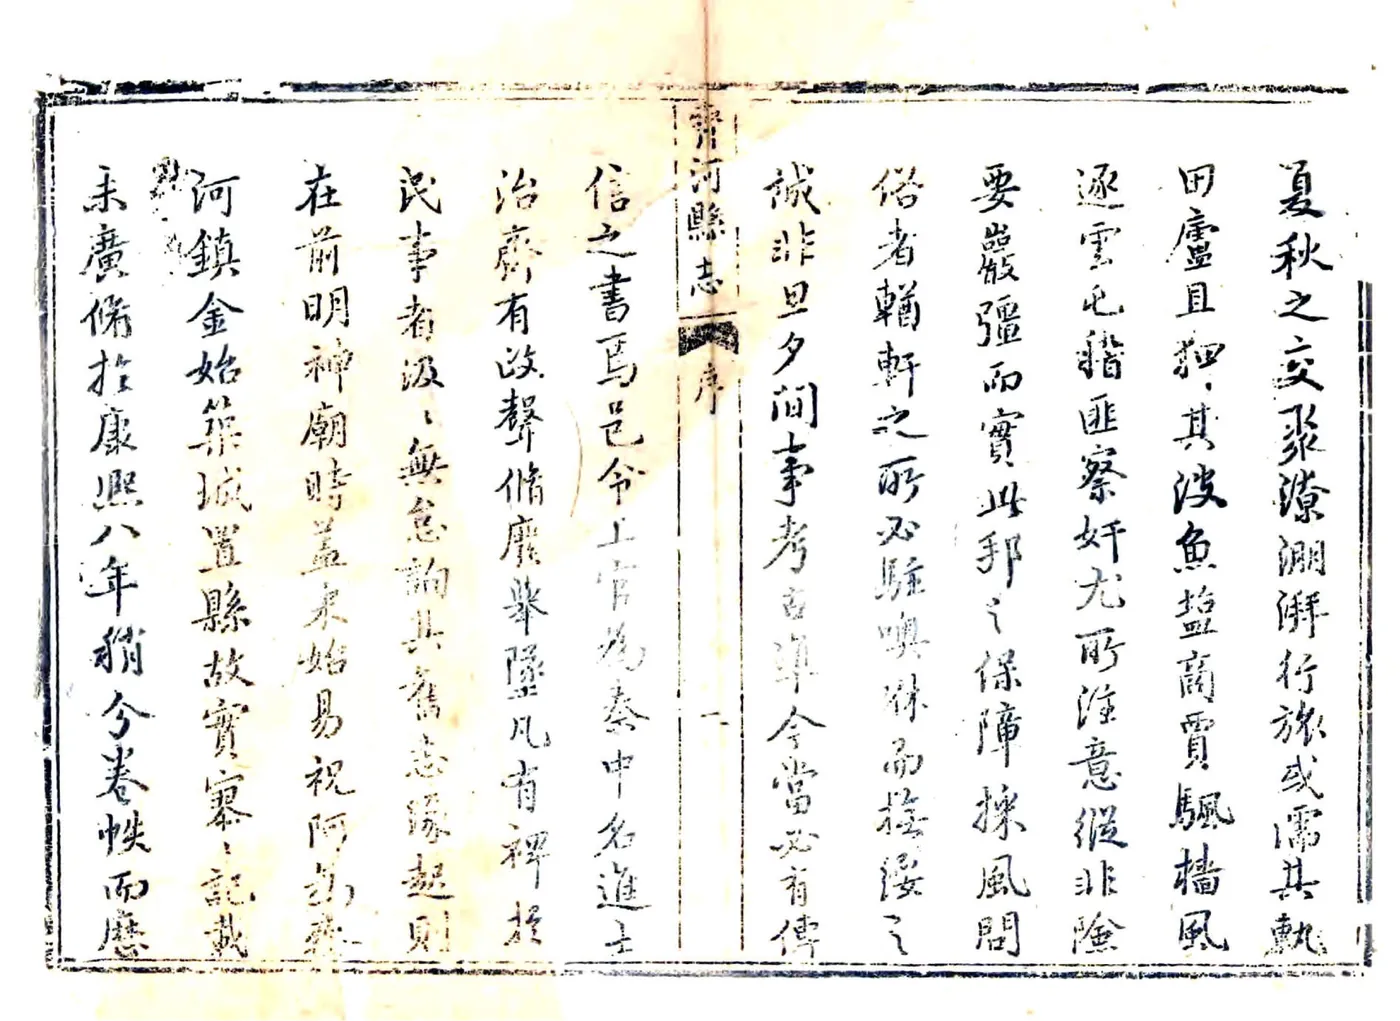 夏秋之交眾潦淜湃行旅或濡其軌
田廬且狎〻其波魚鹽商賈颿檣風
逐雲屯稽匪察奸尤所注意從非險
要巖疆而實此邦之保障採風問
俗者輶軒之所必駐噢咻而撫綏之
誠非旦夕間事考古準今當必有傳
齊河縣志
序
二
信之書焉邑令上官為秦中名進士
治齊有政聲脩廢舉墜凡有裨於
民事者汲〻無怠詢其舊志緣起則
在前明神廟時蓋未始易祝阿為齊
河鎮金始築城置縣故實寥〻記載
未廣脩於康熙八年稍分卷帙而歷